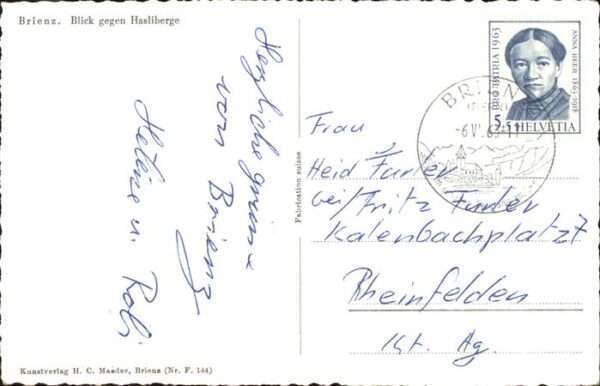 Brienz. Blick gegen Hasliberge
Herzliche grüsse
von Brienz
Helene u. Robi
Fabrication suisse
PRO PATRIA 1963
ANNA HEER 1863-1918
5+5 HELVETIA
BRIENZ
-6.VI.63-11
Frau
Heid Furler
bei/Fritz Furler
Kalenbachplatz 7
Rheinfelden
Kt. Ag.
Kunstverlag H. C. Maeder, Brienz (Nr. F. 144)